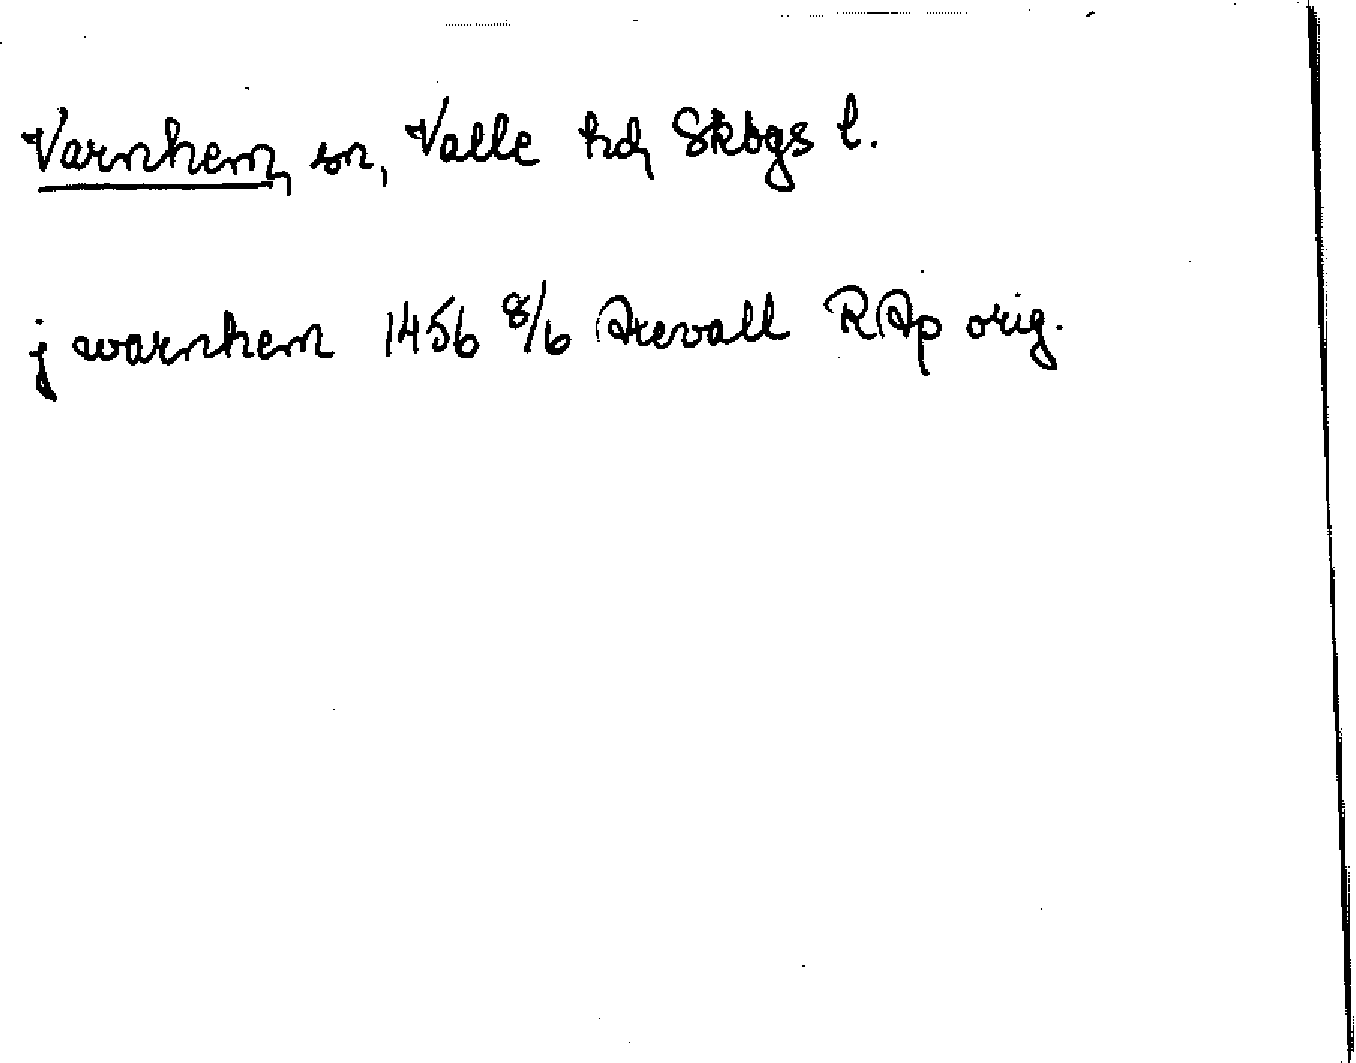 Varnhem, sn, Valle hd, Skbgs l.
j warnhem 1456 8/6 Arevall RAp orig.